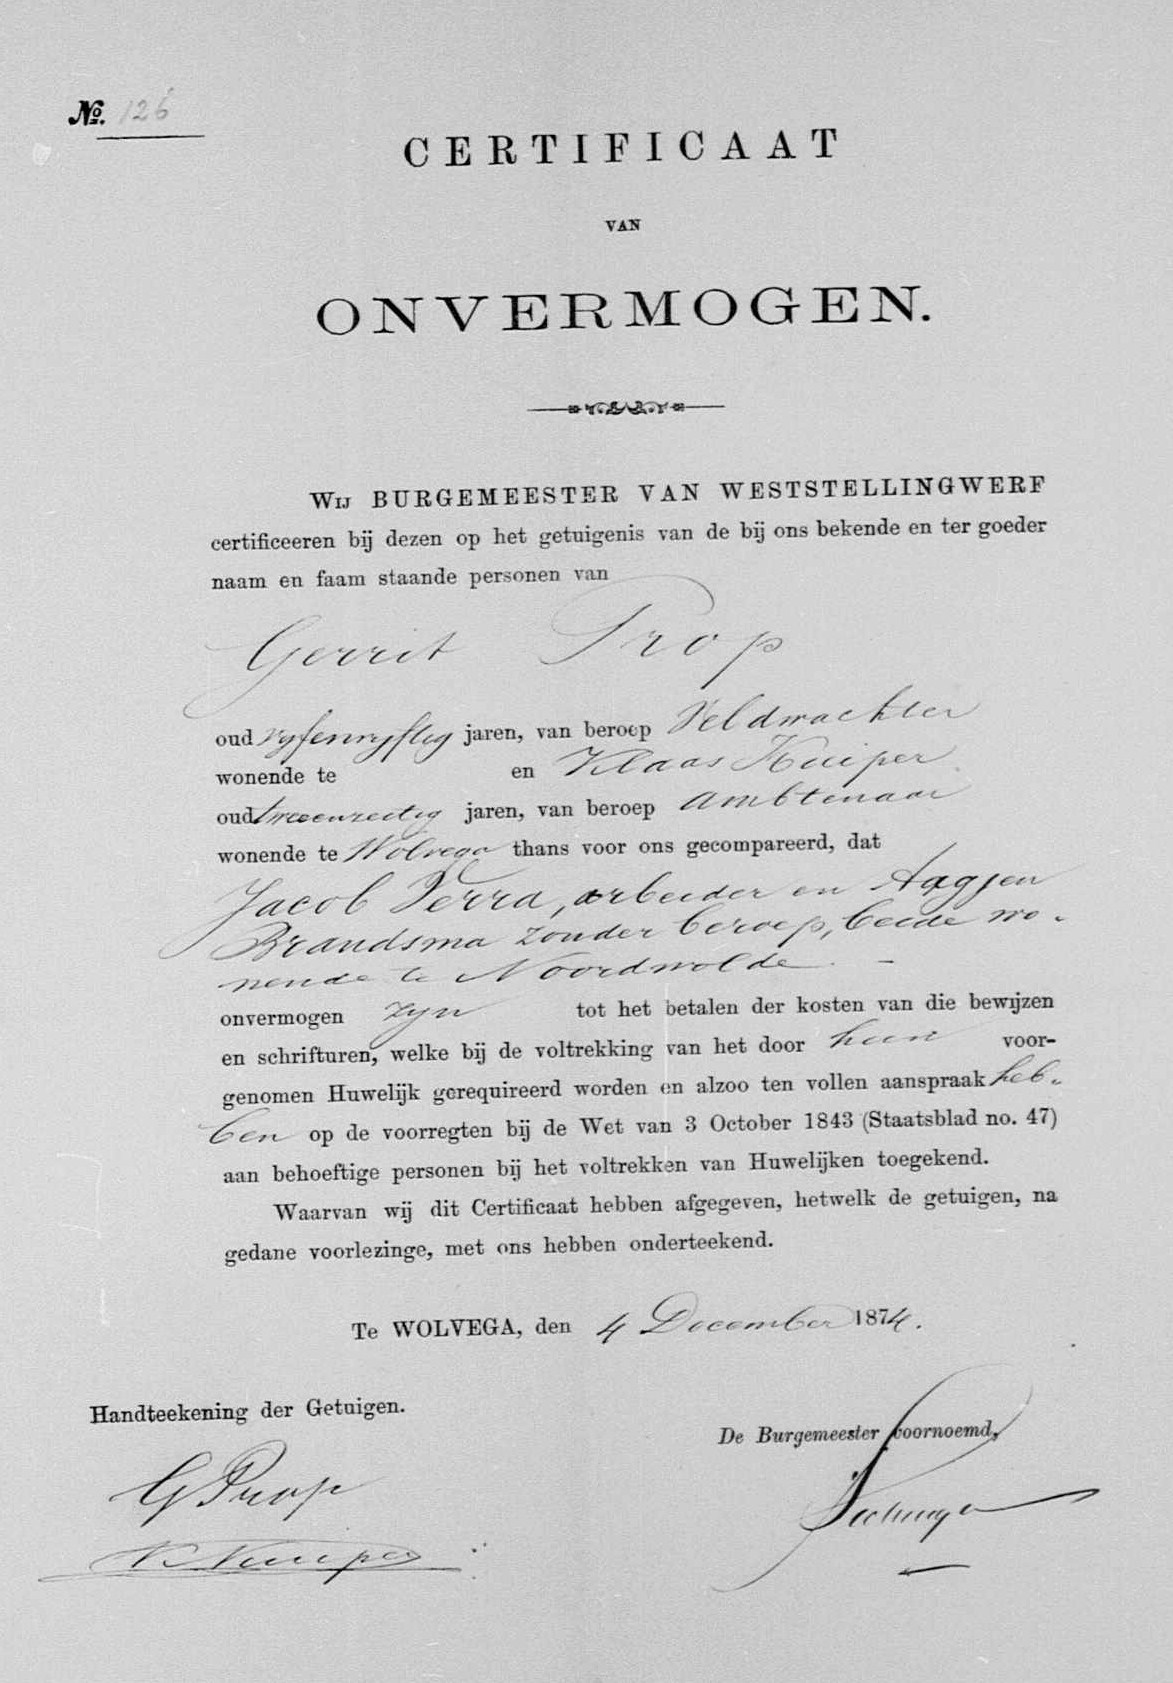 No. 126
CERTIFICAAT
VAN
ONVERMOGEN.
Wij BURGEMEESTER VAN WESTSTELLINGWERF
certificeeren bij dezen op het getuigenis van de bij ons bekende en ter goeder
naam en faam staande personen van
Gerrit Prop
oud vyfenvyftig jaren, van beroep Veldwachter
wonende te en Klaas Kuiper
oud jaren, van beroep Ambtenaar
wonende te Wolvega thans voor ons gecompareerd, dat
Jacob Ferra, arbeider en Aagjen
Brandsma zonder beroep, beide wo-
nende te Noordwolde. -
onvermogen zyn tot het betalen der kosten van die bewijzen
en schrifturen, welke bij de voltrekking van het door hun voor-
genomen Huwelijk gerequireerd worden en alzoo ten vollen aanspraak heb-
ben op de voorregten bij de Wet van 3 October 1843 (Staatsblad no. 47)
aan behoeftige personen bij het voltrekken van Huwelijken toegekend.
Waarvan wij dit Certificaat hebben afgegeven, hetwelk de getuigen, na
gedane voorlezinge, met ons hebben onderteekend.
Te WOLVEGA, den 4 December 1874.
Handteekening der Getuigen.
De Burgemeester voornoemd,
G Prop
K Kuiper